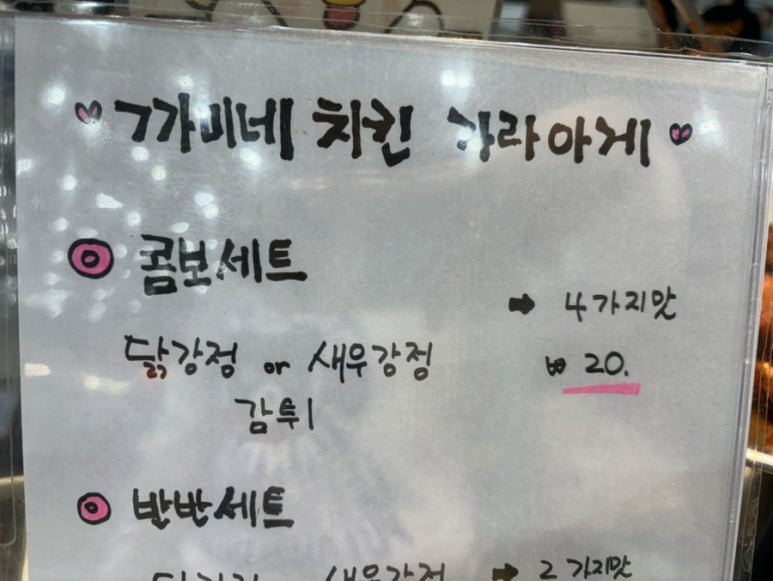 ♥ 까미네 치킨 가라아게 ♥
콤보세트
→ 4가지맛
닭강정 or 새우강정
₩ 20.
감튀
반반세트
닭강정 새우강정 → 2가지맛